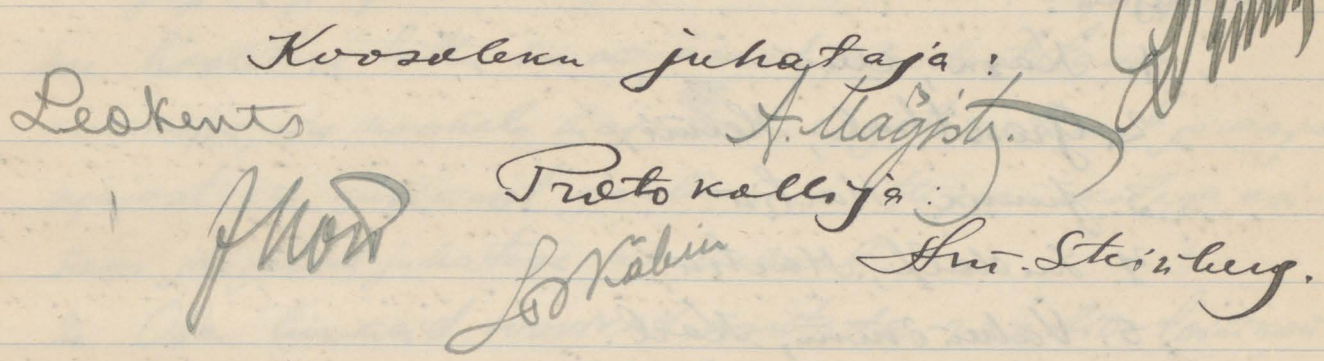 Koosoleku juhataja:
Leokents
A. Mägi
Protokollija:
Käbin
Arn. Steinberg.